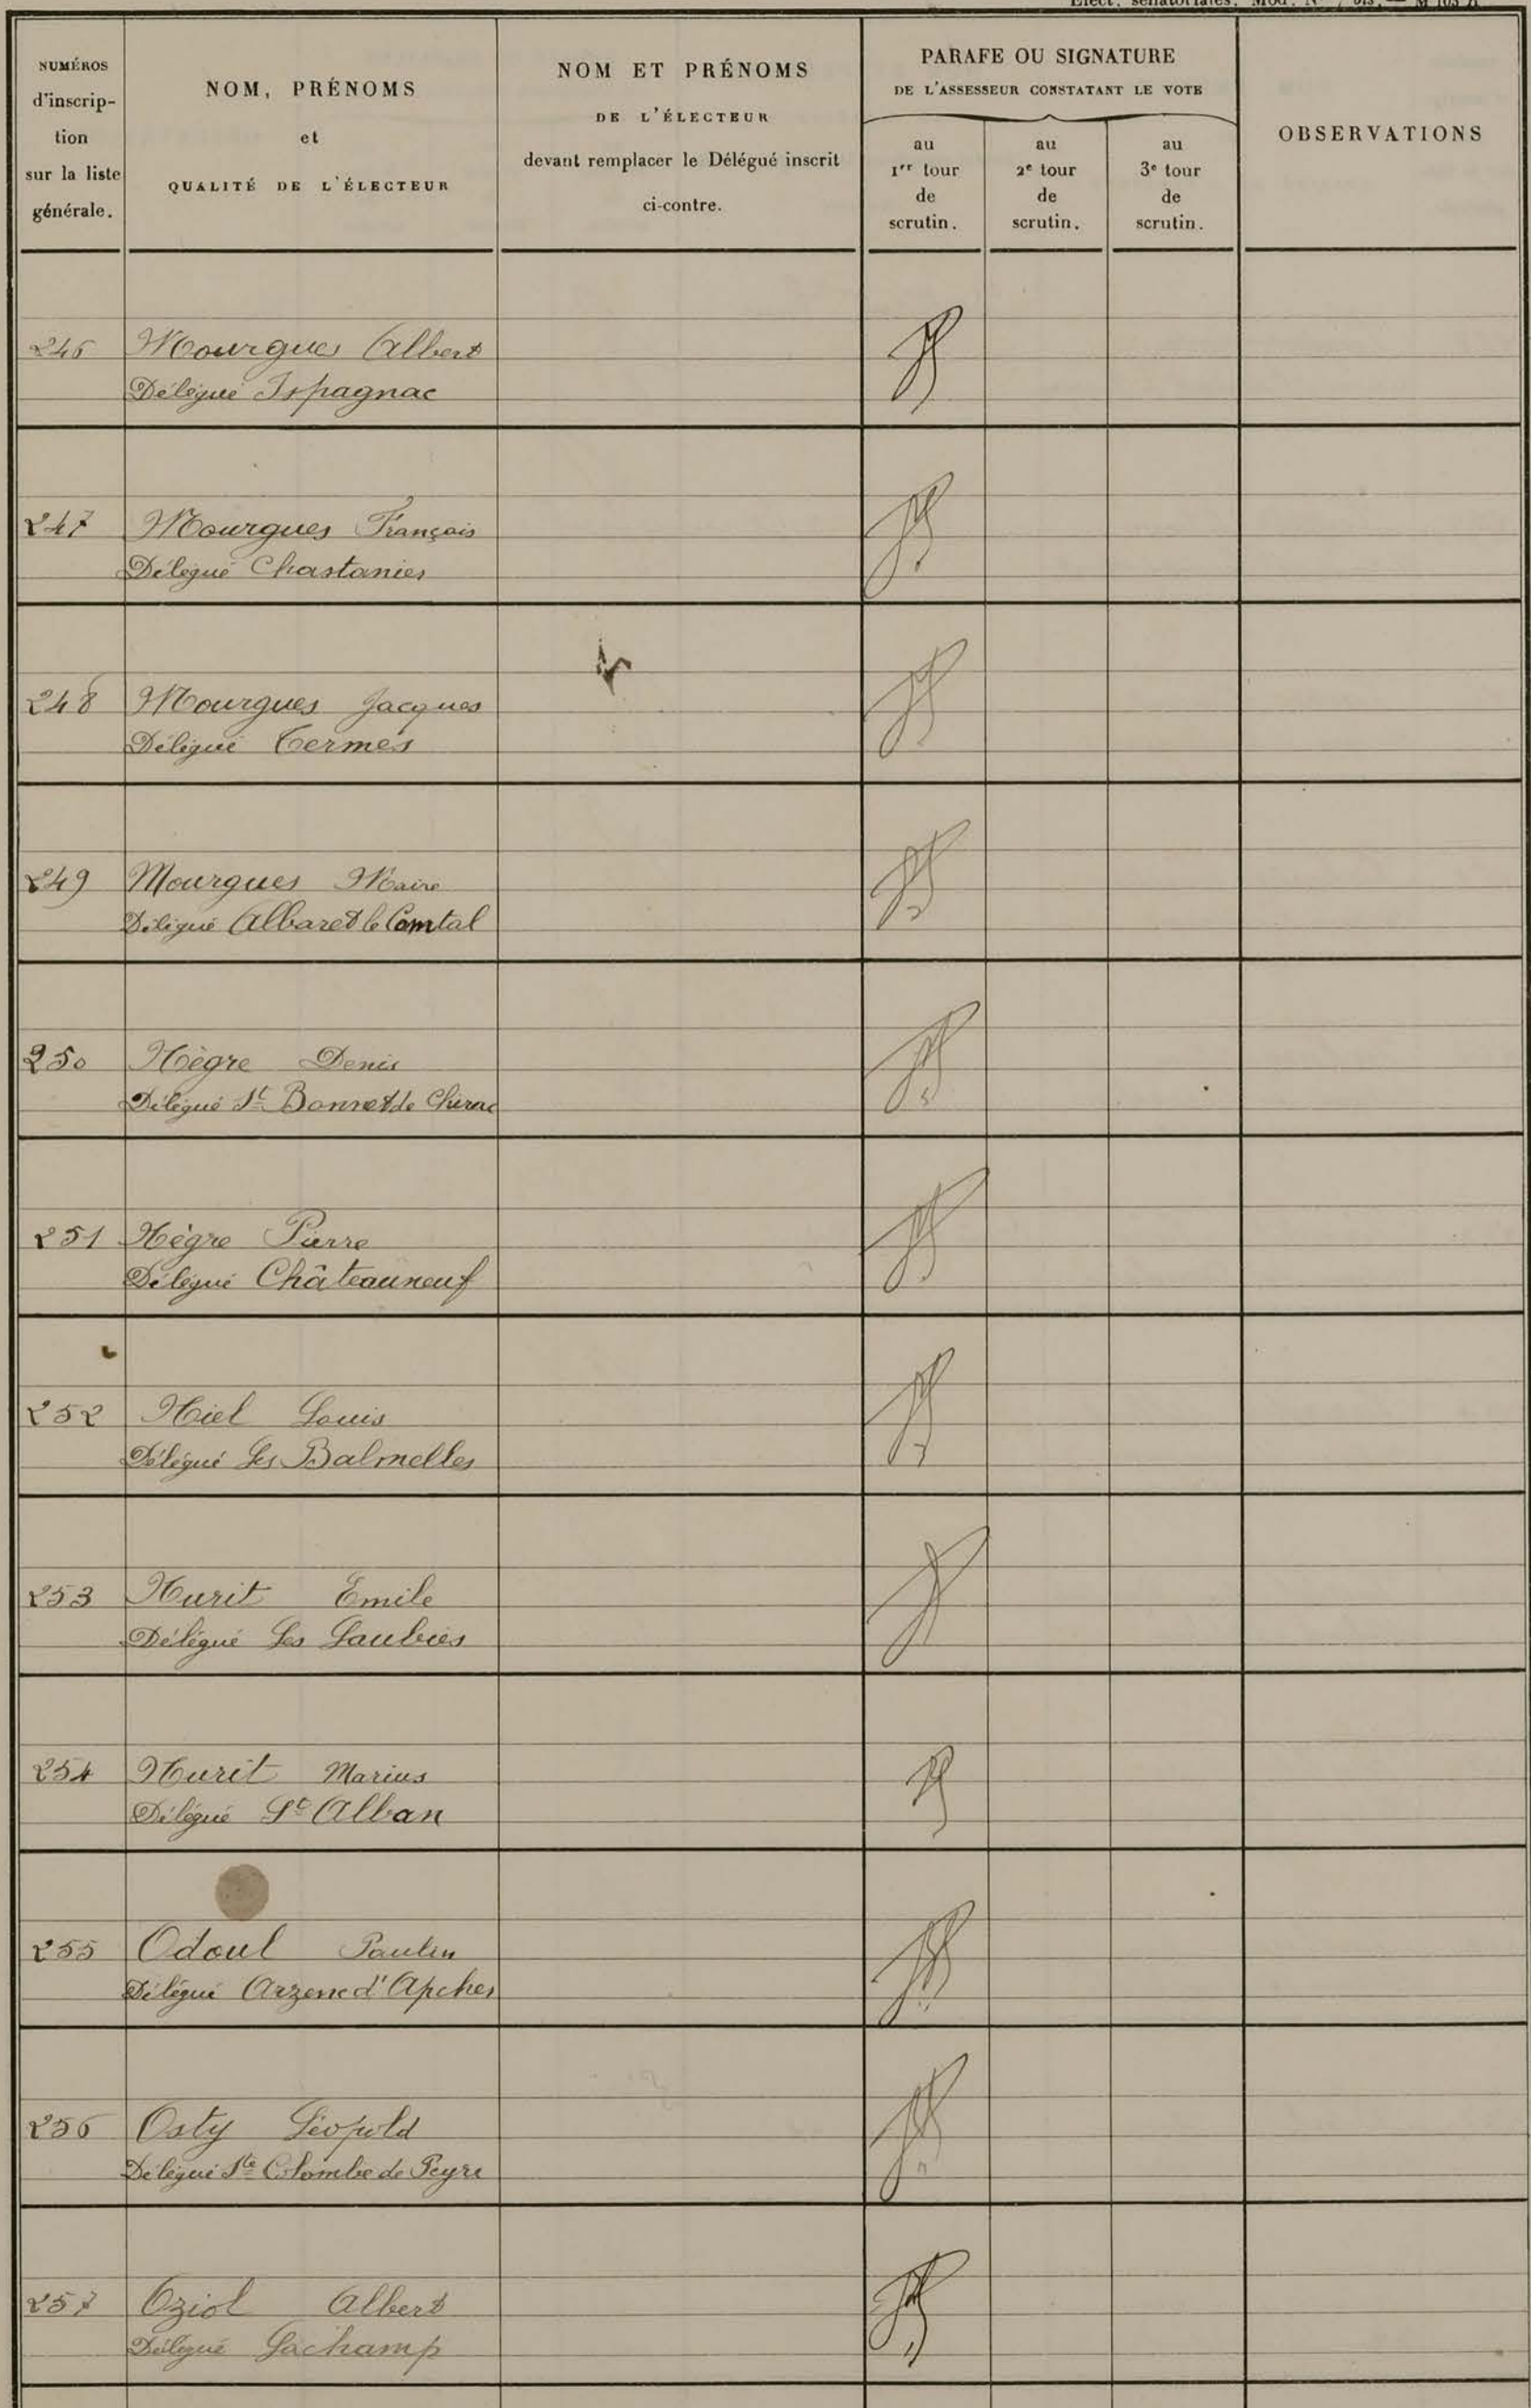 NUMÉROS
d'inscrip-
tion
sur la liste
générale.
NOM, PRÉNOMS
et
QUALITÉ DE L'ÉLECTEUR
NOM ET PRÉNOMS
DE L'ÉLECTEUR
devant remplacer le Délégué inscrit
ci-contre.
PARAFE OU SIGNATURE
DE L'ASSESSEUR CONSTATANT LE VOTE
au
1er tour
de
scrutin.
au
2e tour
de
scrutin.
au
3e tour
de
scrutin.
OBSERVATIONS
246 Mourgues Albert
Délégué Ispagnac
247 Mourgues François
Délégué Chastanier
248 Mourgues Jacques
Délégué Termes
249 Mourgues Maire
Délégué Albaret le Comtal
250 Nègre Denis
Délégué St Bonnet de Chirac
251 Nègre Pierre
Délégué Châteauneuf
252 Niel Louis
Délégué Les Balmelles
253 Nurit Emile
Délégué Les Laubies
254 Nurit Marius
Délégué St Alban
255 Odoul Paulin
Délégué Arzenc d'Apcher
256 Osty Léopold
Délégué Ste Colombe de Peyre
257 Oziol Albert
Délégué Lachamp